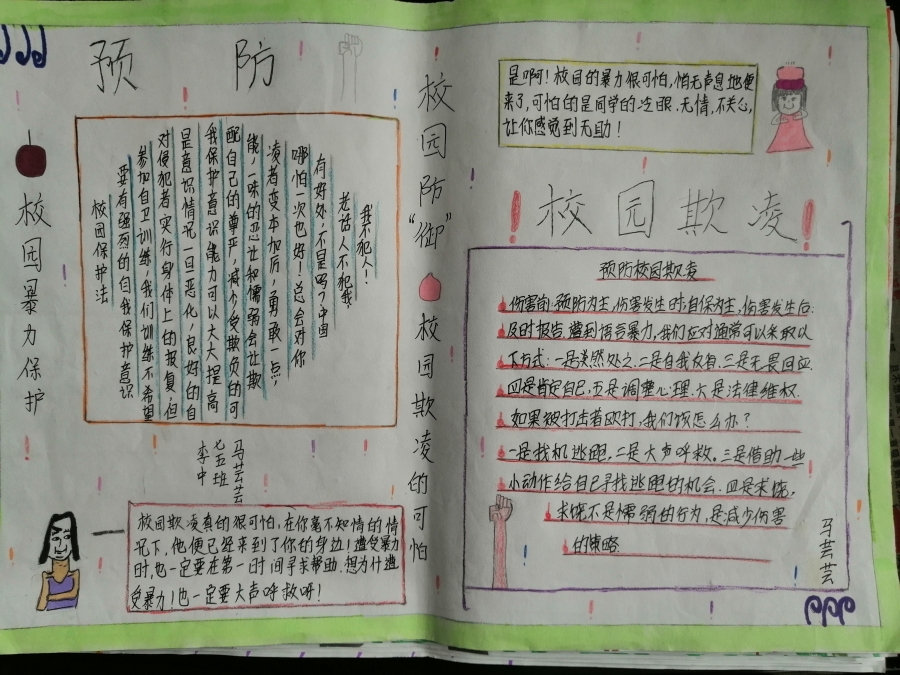 预 防
校园暴力保护
校园保护法
要有强烈的自我保护意识
参加自卫训练,我们训练不希望
对侵犯者实行身体上的报复,但
是意识情况一旦恶化,良好的自
我保护意识能力可以大大提高
配自己的尊严,减少受欺负的可
能,一味的忍让和懦弱会让欺
凌者变本加厉,勇敢一点,
哪怕一次也好!总会对你
有好处,不是吗?中国
老话人不犯我,
我不犯人!
李中
七五班
马芸芸
校园欺凌真的很可怕,在你毫不知情的情
况下,他便已经来到了你的身边!遭受暴力
时,也一定要在第一时间寻求帮助.想为什遭
受暴力!也一定要大声呼救呀!
校园防“御”
校园欺凌的可怕
是啊!校园的暴力很可怕,怕无声息地便
来了,可怕的是同学的冷眼.无情,不关心,
让你感觉到无助!
！校园欺凌！
预防校园欺凌
伤害前:预防为主,伤害发生时:自保为主,伤害发生后:
及时报告.遭到语言暴力,我们应对通常可以采取以
下方式:一是淡然处之.二是自我反省.三是无畏回应.
四是肯定自己.五是调整心理.六是法律维权.
如果被打击者欧打,我们该怎么办?
一是找机逃跑.二是大声呼救.三是借助一些
小动作给自己寻找逃跑的机会.四是求饶,
求饶不是懦弱的行为,是减少伤害
的策略.
马芸芸